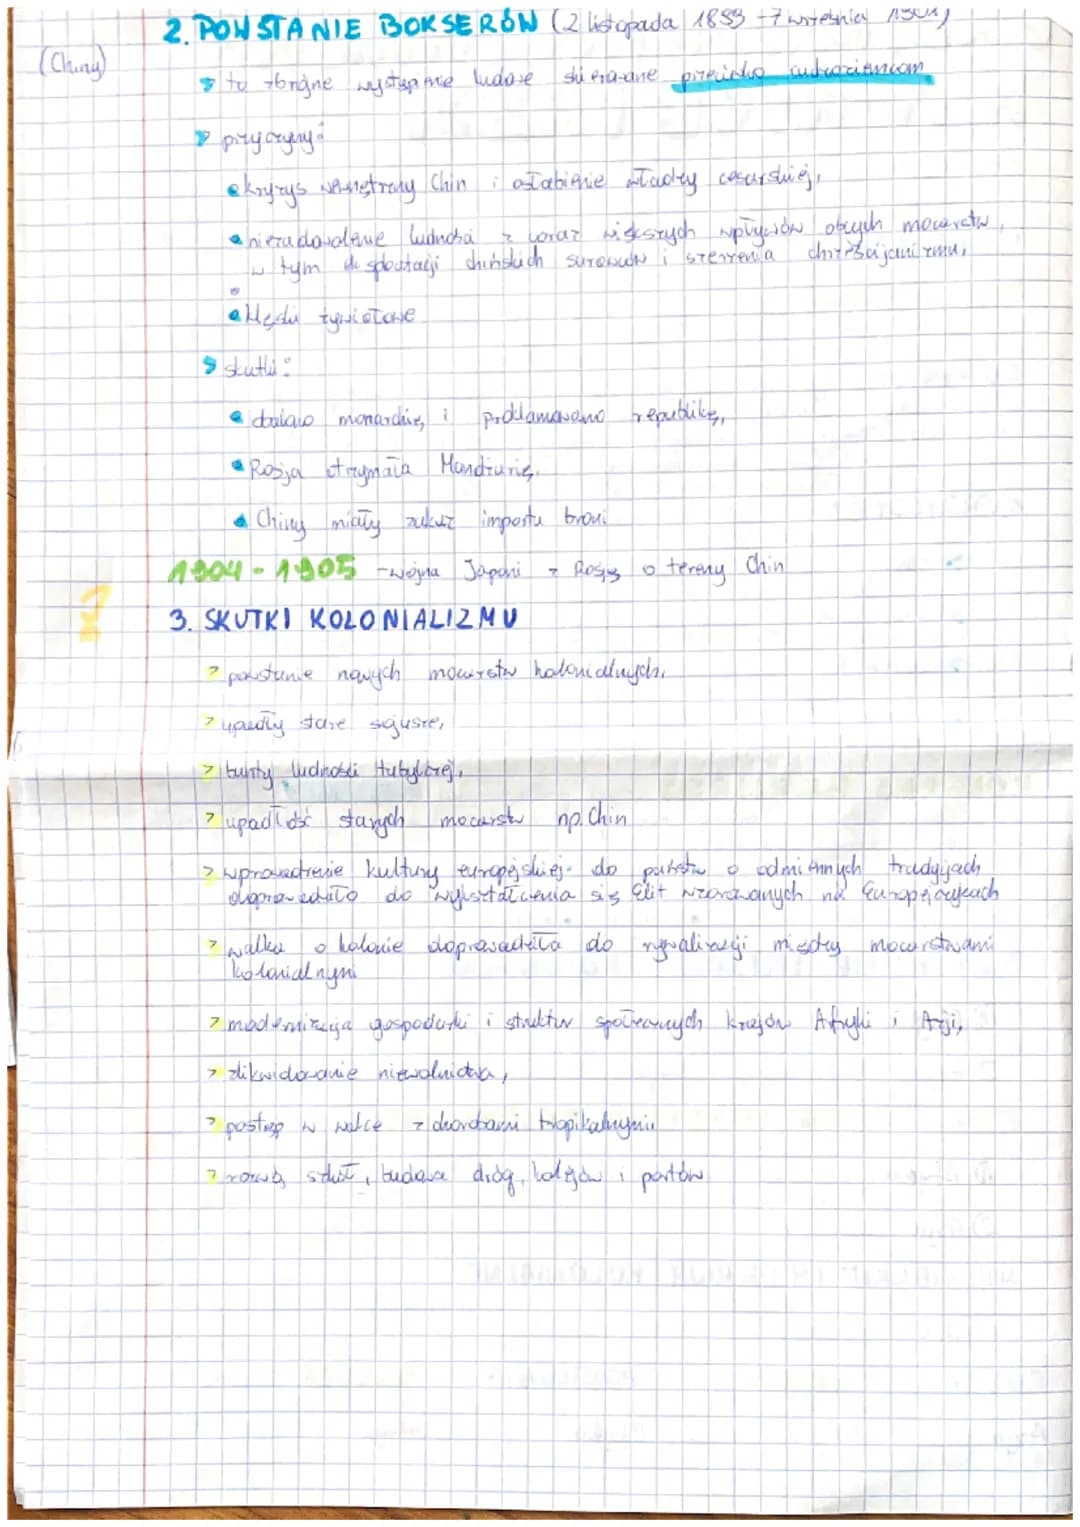 2. POWSTANIE BOKSERÓW (2 listopada 1899 - 7 września 1901)
(Chiny)
to zbrojne wystąpienie ludowe skierowane przeciwko cudzoziemcom
przyczyny:
kryzys wewnętrzny Chin i osłabienie władzy cesarskiej,
niezadowolenie ludności z coraz większych wpływów obcych mocarstw,
w tym eksploatacji chińskich surowców i szerzenia chrześcijanizmu,
klęski żywiołowe
skutki:
obalono monarchię i proklamowano republikę,
Rosja otrzymała Mandżurię.
Chiny miały zakaz importu broni
1904 - 1905 - wojna Japonii z Rosją o tereny Chin
3. SKUTKI KOLONIALIZMU
> powstanie nowych mocarstw kolonialnych,
> upadły stare sojusze,
> bunty ludności tubylczej,
> upadłość starych mocarstw np. Chin
> wprowadzenie kultury europejskiej do państw o odmiennych tradycjach
doprowadziło do wykształcenia się Elit wzorowanych na Europejczykach
> walka o kolonie doprowadziła do rywalizacji między mocarstwami
kolonialnymi
> modernizacja gospodarki i struktur społecznych krajów Afryki i Azji,
> zlikwidowanie niewolnictwa,
> postęp w walce z chorobami tropikalnymi
> rozwój szkół, budowa dróg, kolejów i portów